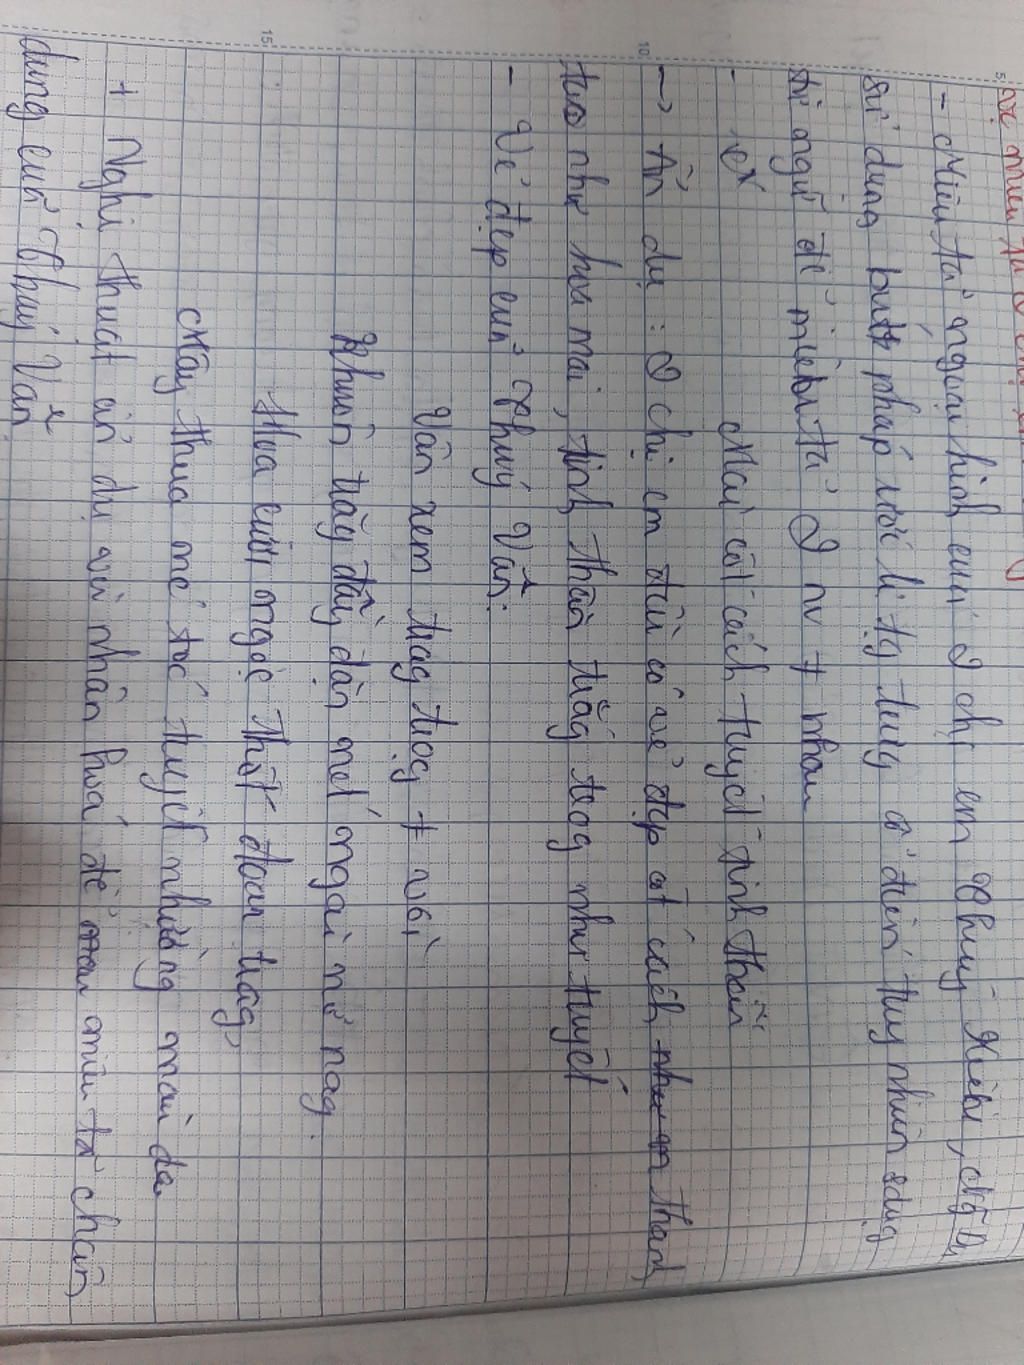 - Miêu tả ngoại hình của 2 chị em Thuý Kiều,
sử dụng bút pháp ước lệ tg trưng cổ điển tuy nhiên sdụg
từ ngữ để miêu tả 2 nv ≠ nhau
- ex Mai cốt cách tuyết tinh thần
→ Ẩn dụ : 2 chị em đều có vẻ đẹp cốt cách thanh
tao như hoa mai, tinh thần trắg tog như tuyết
- Vẻ đẹp của Thuý Vân:
Vân xem trag trọg ≠ vời
Khuôn trăg đầy dặn nét ngài nở nag.
Hoa cười ngọc thốt đoan trag,
Mây thua nước tóc tuyết nhường màu da
+ Nghị thuật ẩn dụ với nhân hoá để miêu tả chân
dung của Thuý Vân
15
10
5